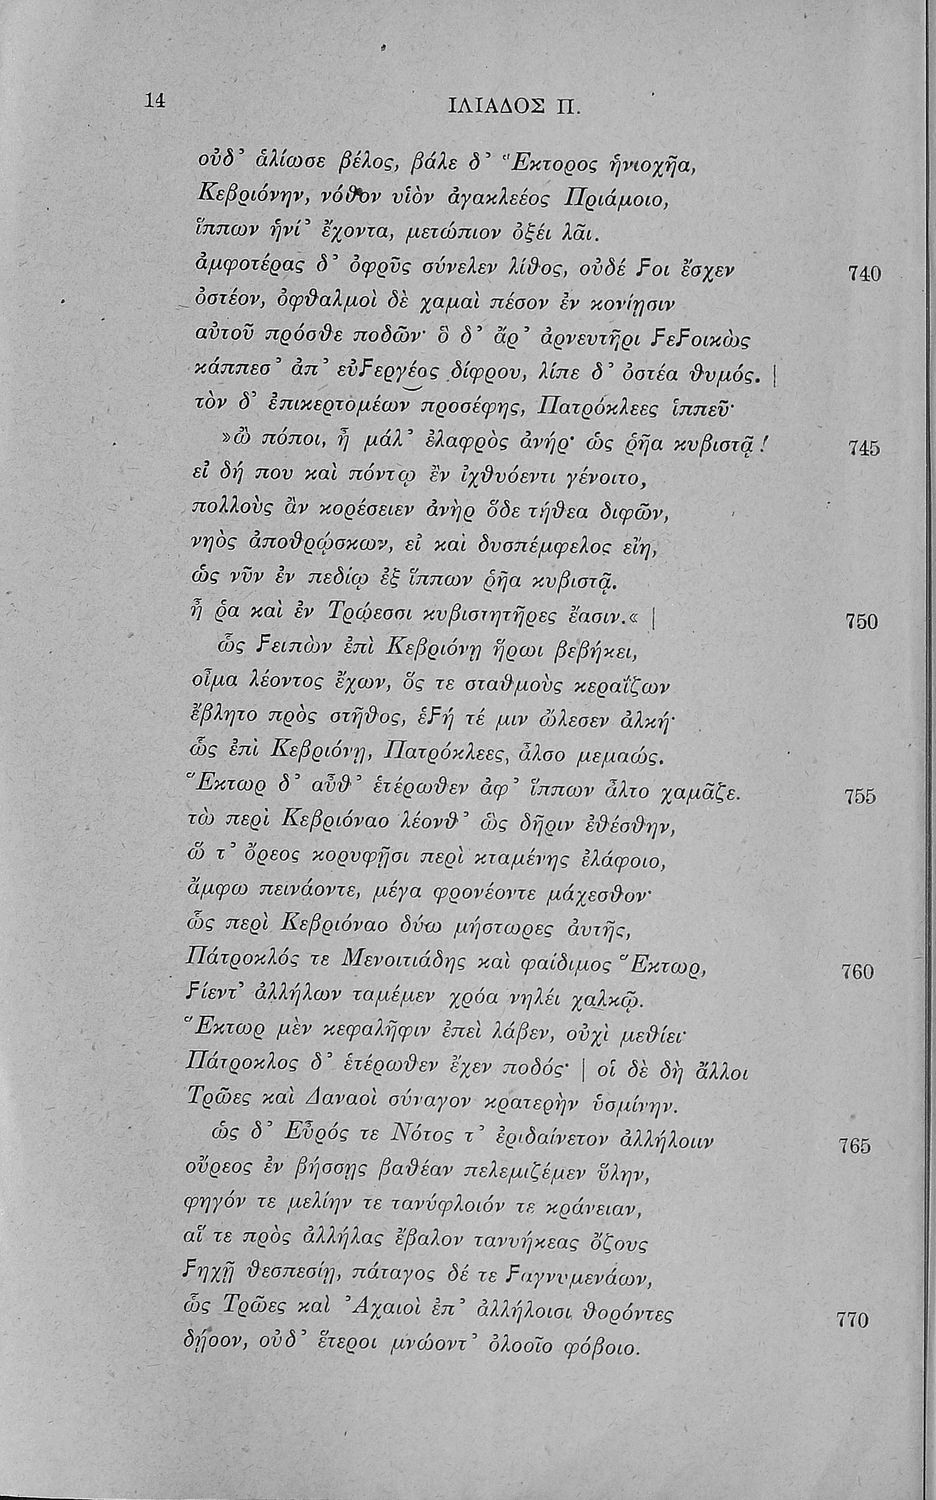 14
ΙΛΙΑΔΟΣ Π.
οὐδ᾽ ἁλίωσε βέλος, βάλε δ᾽ Ἕκτορος ἡνιοχῆα,
Κεβριόνην, νόθον υἱὸν ἀγακλεέος Πριάμοιο,
ἵππων ἡνί᾽ ἔχοντα, μετώπιον ὀξέι λᾶι.
ἀμφοτέρας δ᾽ ὀφρῦς σύνελεν λίθος, οὐδέ ϝοι ἔσχεν 740
ὀστέον, ὀφθαλμοὶ δὲ χαμαὶ πέσον ἐν κονίῃσιν
αὐτοῦ πρόσθε ποδῶν· ὃ δ᾽ ἄρ᾽ ἀρνευτῆρι ϝεϝοικὼς
κάππεσ᾽ ἀπ᾽ εὐϝεργέος δίφρου, λίπε δ᾽ ὀστέα θυμός. |
τὸν δ᾽ ἐπικερτομέων προσέφης, Πατρόκλεες ἱππεῦ·
»ὢ πόποι, ἦ μάλ᾽ ἐλαφρὸς ἀνήρ· ὡς ῥῆα κυβιστᾷ! 745
εἰ δή που καὶ πόντῳ ἔν ἰχθυόεντι γένοιτο,
πολλοὺς ἂν κορέσειεν ἀνὴρ ὅδε τήθεα διφῶν,
νηὸς ἀποθρῴσκων, εἰ καὶ δυσπέμφελος εἴη,
ὡς νῦν ἐν πεδίῳ ἐξ ἵππων ῥῆα κυβιστᾷ.
ἦ ῥα καὶ ἐν Τρώεσσι κυβιστητῆρες ἔασιν.« | 750
ὣς ϝειπὼν ἐπὶ Κεβριόνῃ ἥρωι βεβήκει,
οἶμα λέοντος ἔχων, ὅς τε σταθμοὺς κεραΐζων
ἔβλητο πρὸς στῆθος, ἑϝή τέ μιν ὤλεσεν ἀλκή·
ὣς ἐπὶ Κεβριόνῃ, Πατρόκλεες, ἆλσο μεμαώς.
Ἕκτωρ δ᾽ αὖθ᾽ ἑτέρωθεν ἀφ᾽ ἵππων ἆλτο χαμᾶζε. 755
τὼ περὶ Κεβριόναο λέονθ᾽ ὣς δῆριν ἐθέσθην,
ὥ τ᾽ ὄρεος κορυφῇσι περὶ κταμένης ἐλάφοιο,
ἄμφω πεινάοντε, μέγα φρονέοντε μάχεσθον·
ὣς περὶ Κεβριόναο δύω μήστωρες ἀυτῆς,
Πάτροκλός τε Μενοιτιάδης καὶ φαίδιμος Ἕκτωρ, 760
ϝίεντ᾽ ἀλλήλων ταμέμεν χρόα νηλέι χαλκῷ.
Ἕκτωρ μὲν κεφαλῆφιν ἐπεὶ λάβεν, οὐχὶ μεθίει·
Πάτροκλος δ᾽ ἑτέρωθεν ἔχεν ποδός· | οἱ δὲ δὴ ἄλλοι
Τρῶες καὶ Δαναοὶ σύναγον κρατερὴν ὑσμίνην.
ὡς δ᾽ Εὖρός τε Νότος τ᾽ ἐριδαίνετον ἀλλήλοιιν 765
οὔρεος ἐν βήσσῃς βαθέαν πελεμιζέμεν ὕλην,
φηγόν τε μελίην τε τανύφλοιόν τε κράνειαν,
αἵ τε πρὸς ἀλλήλας ἔβαλον τανυήκεας ὄζους
ϝηχῇ θεσπεσίῃ, πάταγος δέ τε ϝαγνυμενάων,
ὣς Τρῶες καὶ Ἀχαιοὶ ἐπ᾽ ἀλλήλοισι θορόντες 770
δῄοον, οὐδ᾽ ἕτεροι μνώοντ᾽ ὀλοοῖο φόβοιο.